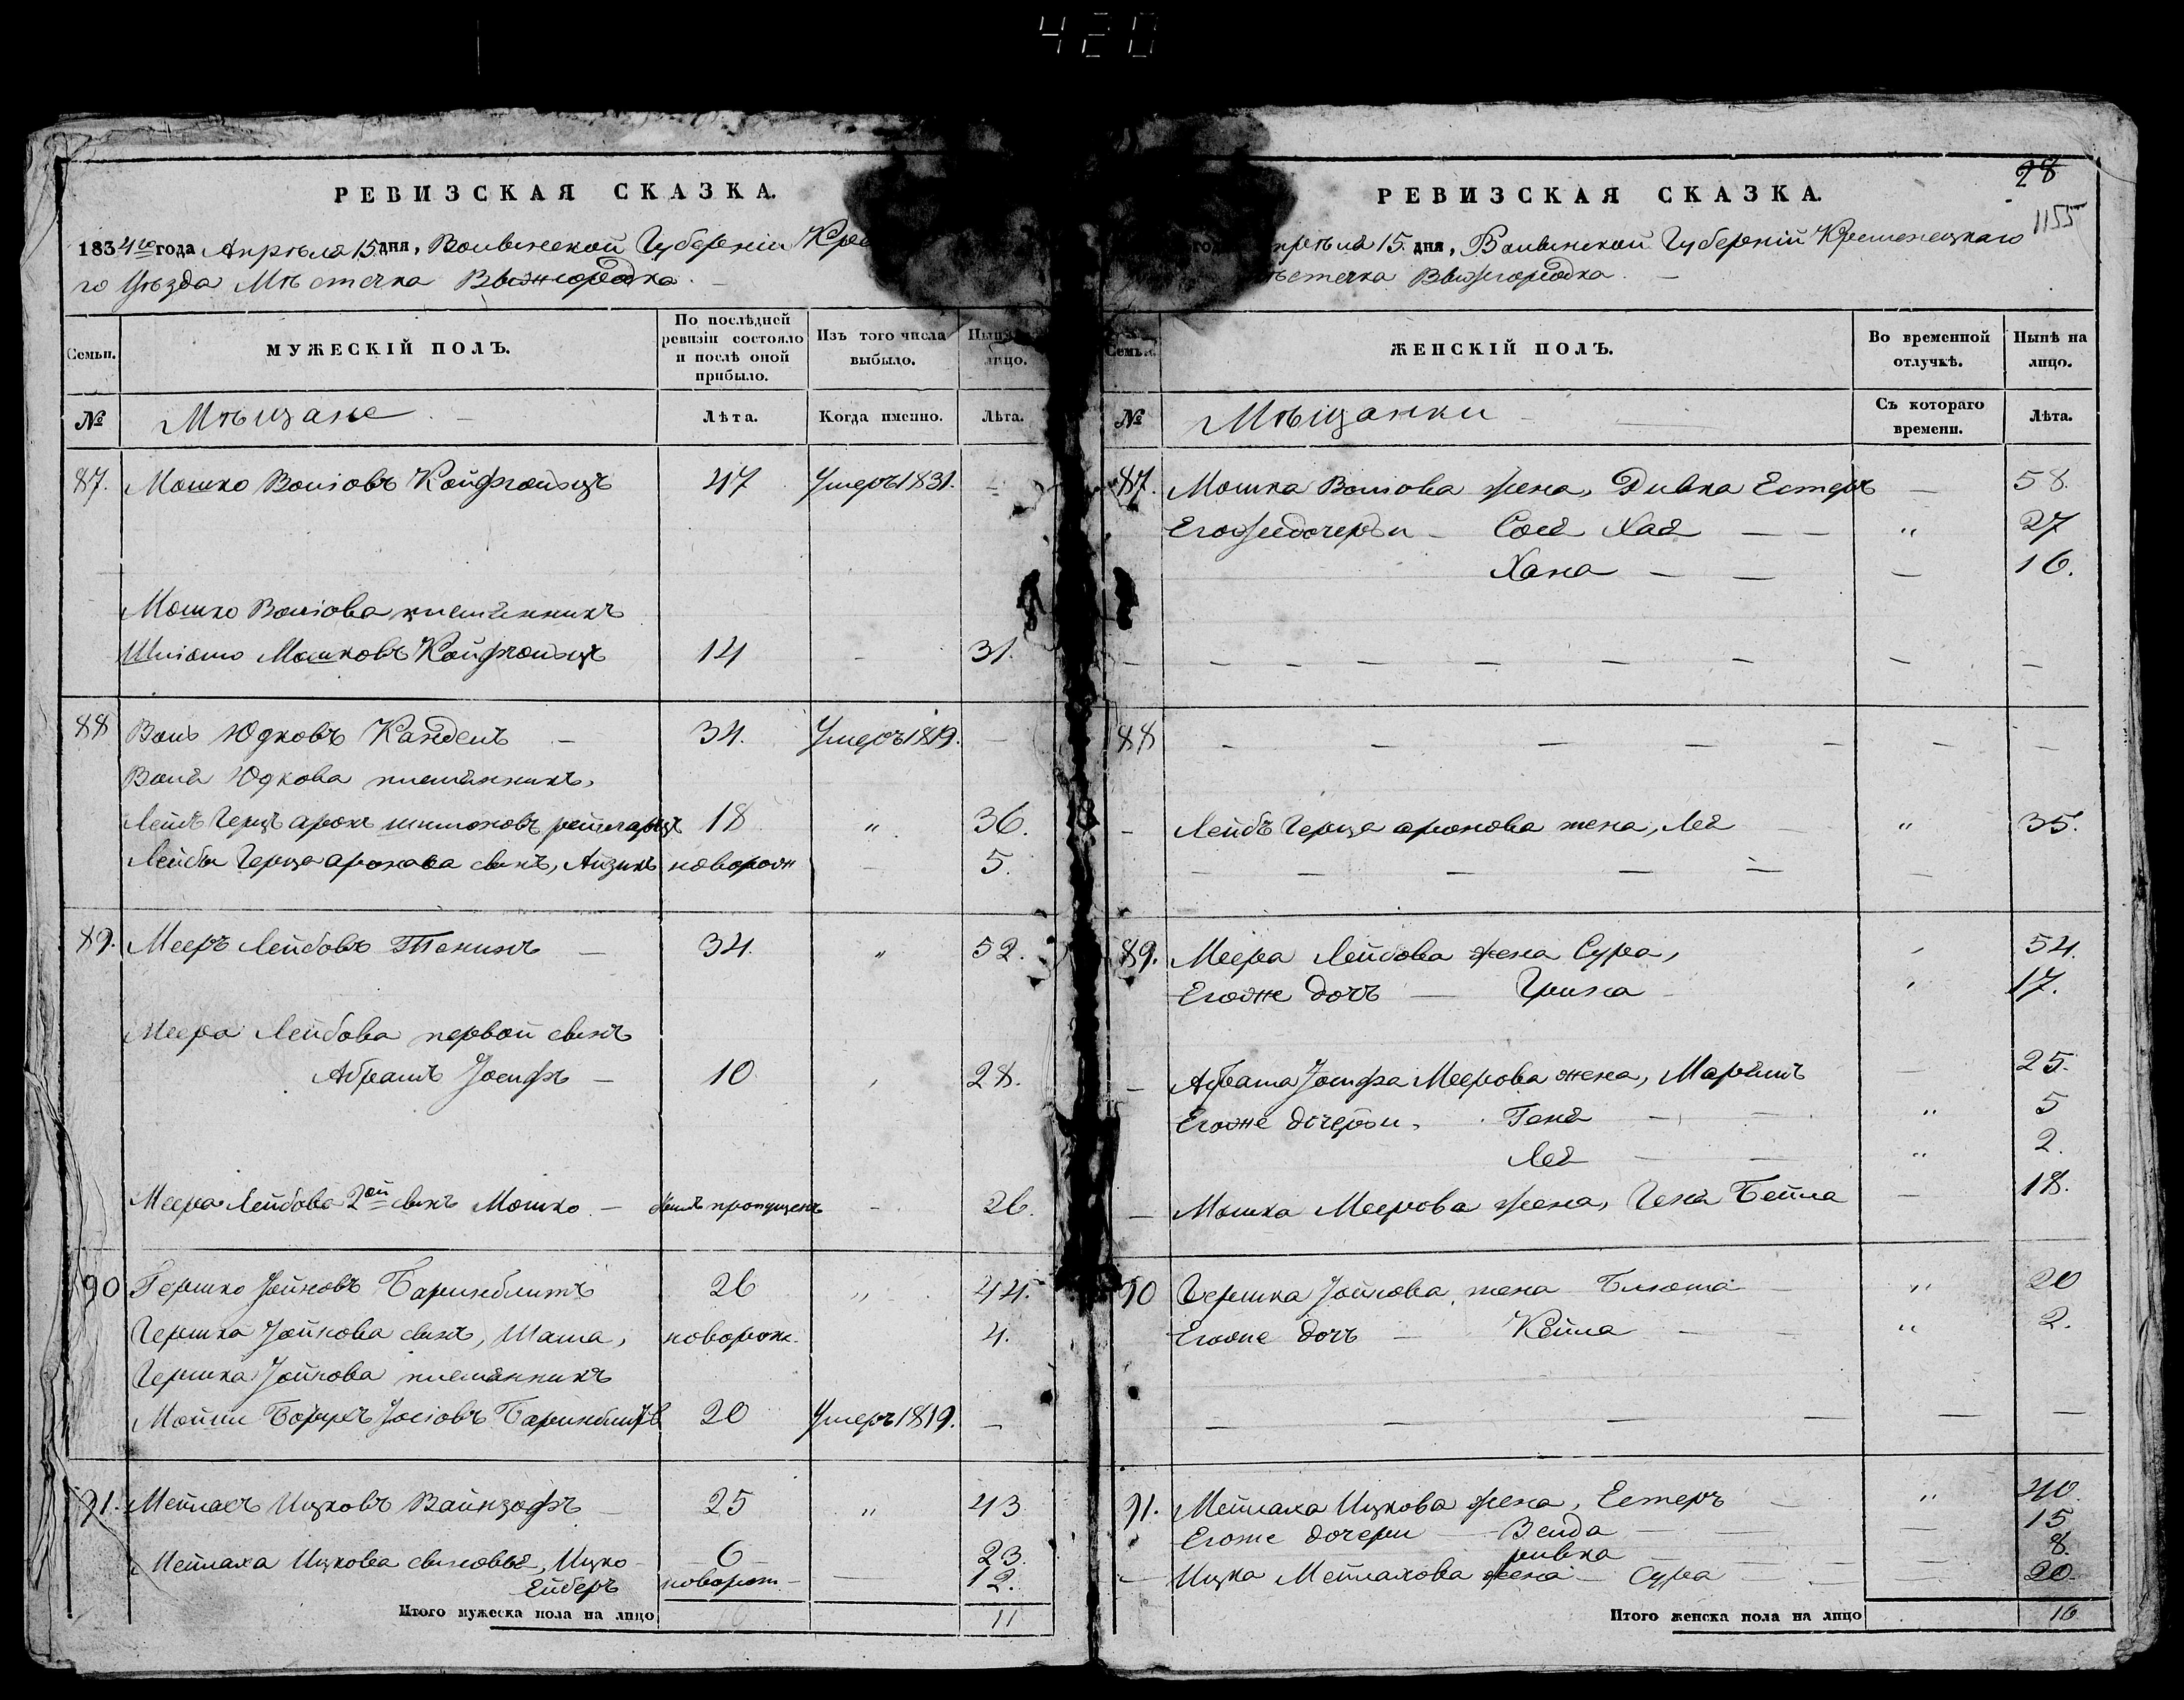 420
РЕВИЗСКАЯ СКАЗКА.
1834го года Апрѣля 15 дня, Волынской Губерніи Кре
го уѣзда Мѣстечка Вышгородка.
Семьи.
МУЖЕСКІЙ ПОЛЪ.
По послѣдней ревизіи состояло и послѣ оной прибыло.
Изъ того числа выбыло.
лицо.
№ Мѣщане Лѣта. Когда именно. Лѣта.
87. Мошко Вольовъ 47 Умеръ 1831.
Мошко Вольова племянникъ
Шліомо Мошковъ 14 31.
88 Воль Юдковъ Кандель 34. Умеръ 1819.
Воля Юдкова племянникъ,
Лейбъ Герцъ Аронъ Шимоновъ 18 " 36.
Лейбы Герца Аронова сынъ, Айзикъ новорож 5.
89. Мееръ Лейбовъ 34. " 52.
Меера Лейбова первой сынъ
Абрамъ Іосифъ 10 28.
Меера Лейбова 2ой сынъ Мошко былъ пропущенъ 26.
90 Гершко Іойновъ Баринблитъ 26 " 44.
Гершка Іойнова сынъ, Шама, новорож. 4.
Гершка Іойнова племянникъ
Мойши Іосіовъ Баринблитъ 20 Умеръ 1819.
91. Мейлахъ Ицковъ Вайнзофъ 25 " 43
Мейлаха Ицкова сыновья, Ицко 6 23.
Ейберъ новорож 12.
Итого мужеска пола на лицо 11
28
1155
РЕВИЗСКАЯ СКАЗКА.
15 дня, Волынской Губерній Кременецкаго
Вышгородка.
ЖЕНСКІЙ ПОЛЪ.
Во временной отлучкѣ.
Нынѣ на лицо.
№ Мѣщанки Съ котораго времени. Лѣта.
87. Мошка Вольова жена, Дивка Естеръ 58.
Егожедочери Сося Хая " 27
Хана 16.
88
Лейбъ Герца Аронова жена, Лея " 35.
89. Меера Лейбова жена Сура, 54.
Егоже дочь 17.
Абрама Іосифа Меерова жена, Марямъ 25.
Егоже дочери, Геня " 5
Лея " 2.
Мошка Меерова жена, Геня Бейла 18.
90 Гершка Іойнова жена Блюма " 20
Егоже дочь Кейла " 2.
91. Мейлаха Ицкова жена, Естеръ " 40.
Егоже дочери Зелда 15
ривка 8.
Ицка Мейлахова жена Сура 20.
Итого женска пола на лицо 16